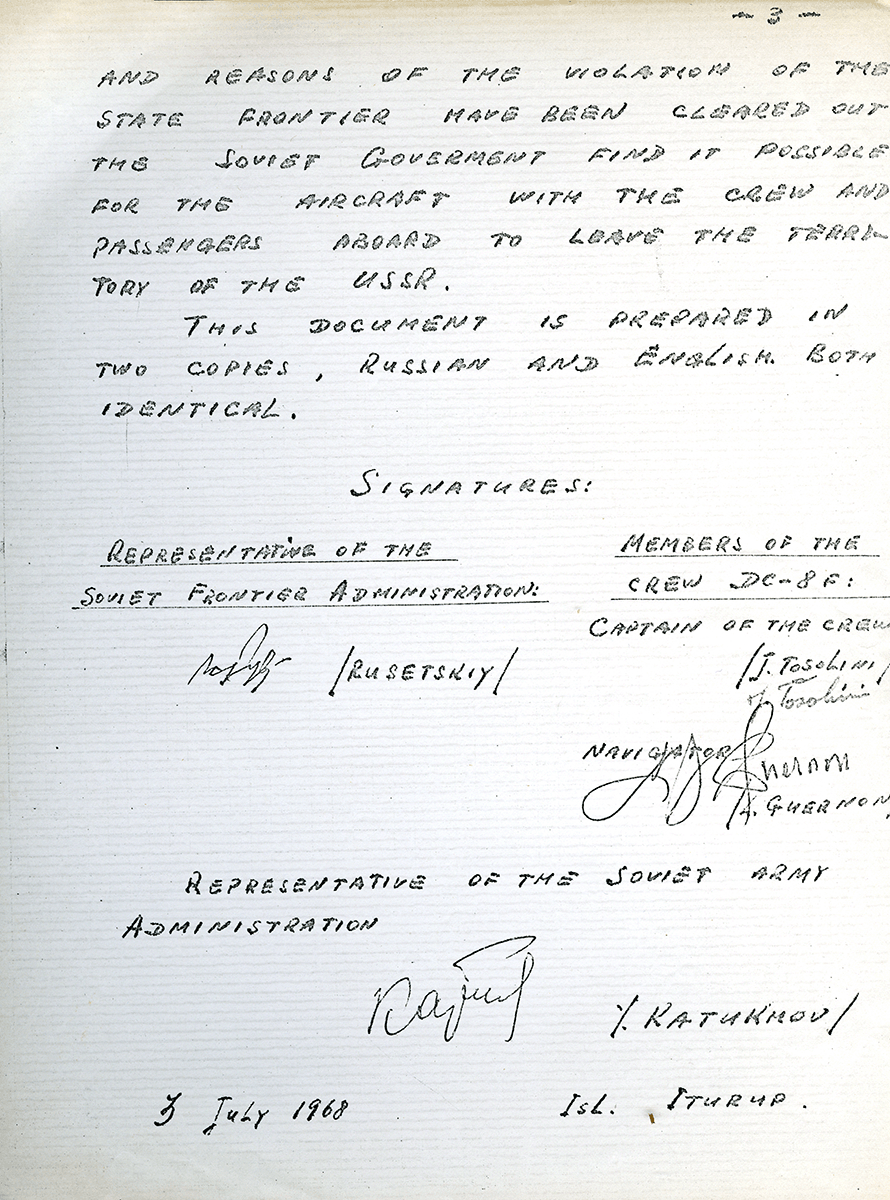 - 3 -
AND REASONS OF THE VIOLATION OF THE
STATE FRONTIER HAVE BEEN CLEARED OUT
THE SOVIET GOVERMENT FIND IT POSSIBLE
FOR THE AIRCRAFT WITH THE CREW AND
PASSENGERS ABOARD TO LEAVE THE TERRI-
TORY OF THE USSR.
THIS DOCUMENT IS PREPARED IN
TWO COPIES, RUSSIAN AND ENGLISH. BOTH
IDENTICAL.
SIGNATURES:
REPRESENTATIVE OF THE
SOVIET FRONTIER ADMINISTRATION:
/RUSETSKIY/
MEMBERS OF THE
CREW DC-8F:
CAPTAIN OF THE CREW
/J. TOSOLINI/
J Tosolini
NAVIGATOR
Guernon
/L. GUERNON/
REPRESENTATIVE OF THE SOVIET ARMY
ADMINISTRATION
/. KATUKHOV/
3 JULY 1968 ISL. ITURUP.